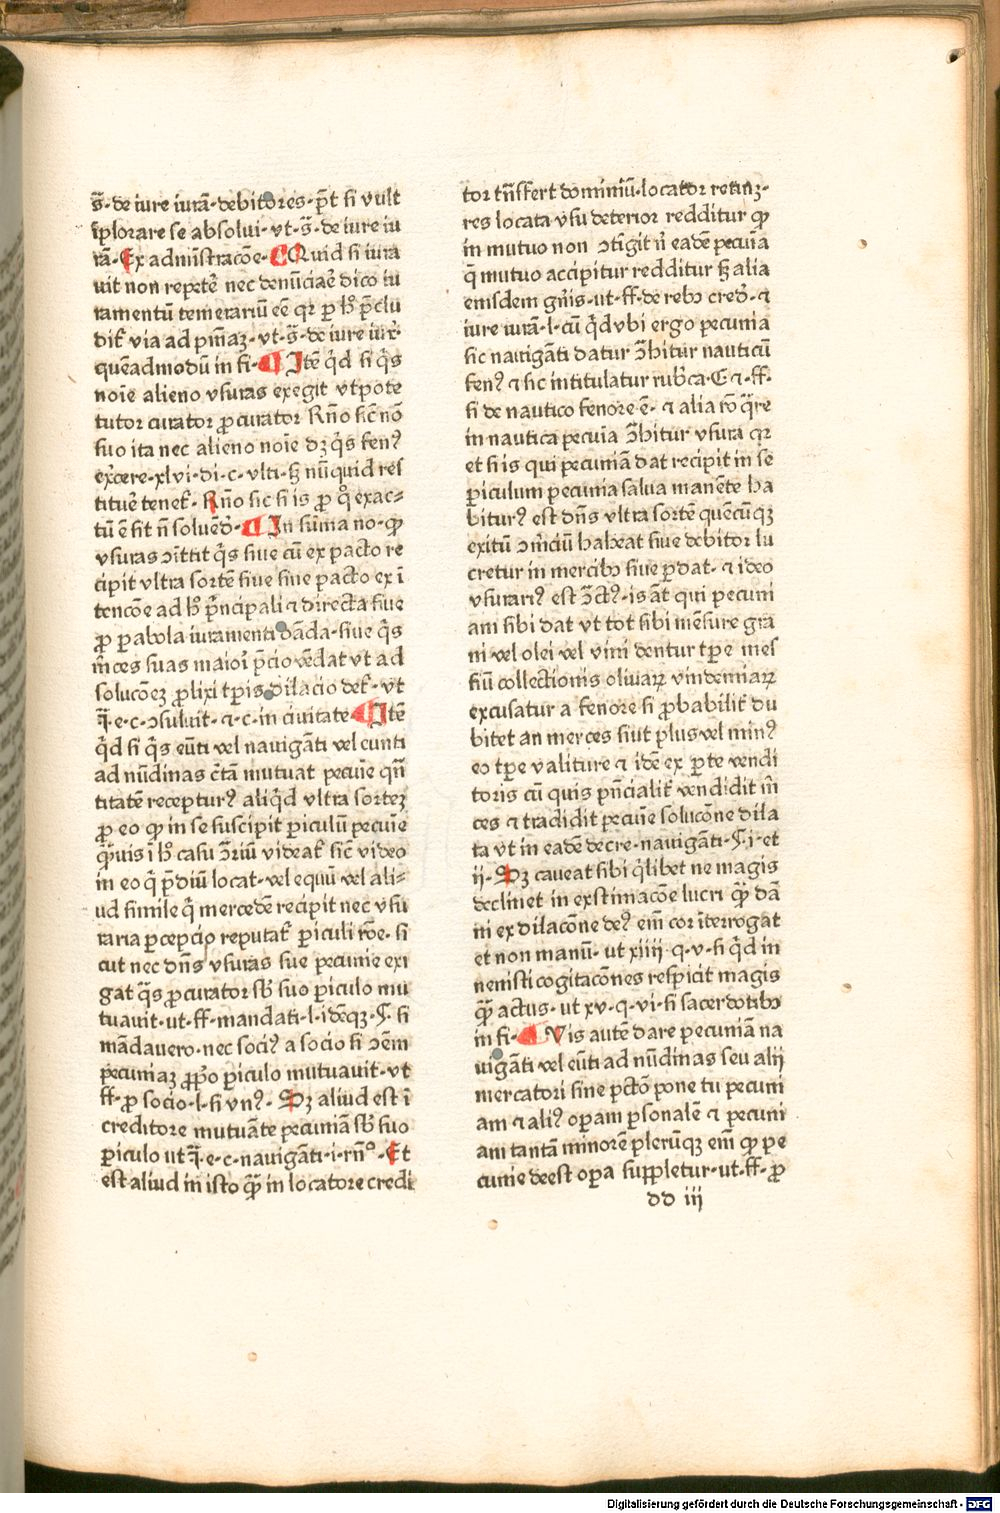 s̄·de iure iurā·debitores·p̄t si vult
īplorare se absolui·vt·s̄·de iure iu
rā·Ex adminīstracōe·¶Quid si iura
uit non repetē nec denūciaē dico iu
ramentū temerariū eē qr p hº p̄clu
dit᷑ via ad pm̄aꝫ·vt·s̄·de iure iur̄·
quēadmodū in fi·¶Itē q̇d si q̇s
noīe alieno vsuras exegit vtpote
tutor curator ꝓcurator Rn̄o sic̄ nō
suo ita nec alieno noīe dꝫ q̇s fenꝰ
exc̄ere·xlvi·di·c·vlti·sꝫ nūquid res
tituē tenet᷑·Rn̄o sic si is ꝓ qº exac⸗
tū ē sit n̄ soluēdº·¶In sūma no·ꝙ
vsuras ↄm̄ittit q̇s siue cū ex pacto re
cipit vltra sortē siue sine pacto ex ī
tencōe ad hº p̄ncipali ⁊ directa siue
ꝓ ꝑabola iuramenti dāda·siue q̇s
m̄ces suas maioī p̄cio vēdat vt ad
solucōeꝫ ꝓlixi tꝑis dilacio det᷑·vt
q̄·e·c·ↄsuluit·⁊·c·in ciuitate¶Itē
q̇d si q̇s eūti vel nauigāti vel eunti
ad nūdinas c̄tā mutuat pecuīe qn̄
titatē recepturꝰ aliq̇d vltra sorteꝫ
ꝓ eo ꝙ in se suscipit ꝑiculū pecuīe
qᷓuis ī hº casu ↄ̄riū videat᷑ sic̄ video
in eo q̇ p̄diū locat·vel equū vel ali⸗
ud simile q̇ mercedē recipit nec vsu
raria ꝑcepcio reputat᷑ ꝑiculi rōe·si
cut nec dn̄s vsuras sue pecunie exi
gat q̇s ꝓcurator sb̄ suo ꝑiculo mu
tuauit·ut·ff·mandati·l·idēqꝫ·§·si
mādauero·nec sociꝰ a socio si ↄēm
pecuniaꝫ ꝓp̄o ꝑiculo mutuauit·vt
ff·ꝓ socio·l·si vnꝰ·Sꝫ aliud est ī
creditore mutuāte pecuniā sb̄ suo
ꝑiculo ut q̄·e·c·nauigāti·i·rn̄º·Et
est aliud in isto qᷓ in locatore credi
tor tn̄sfert dominiū·locator retinꝫ·
res locata vsu deterior redditur ꝙ
in mutuo non ↄtīgit n̄ eadē pecuīa
q̄ mutuo accipitur redditur sꝫ alia
eiusdem gn̄is·ut·ff·de rebꝫ credº·⁊
iure iurā·l·cū q̇d vbi ergo pecunia
sic nauigāti datur ↄ̄hitur nauticū
fenꝰ ⁊ sic intitulatur rub̄ca·C ⁊·ff·
si de nautico fenore ē·⁊ alia rō q̄re
in nautica pecuīa ↄ̄hitur vsura qr
et si is qui pecuniā dat recipit in se
ꝑiculum pecunia salua manēte ha
biturꝰ est dn̄s vltra sortē quēcūqꝫ
exitū ↄm̄ciū habeat siue debitor lu
cretur in mercibꝫ siue ꝑdat·⁊ ideo
vsurariꝰ est ↄ̄ctꝰ·is āt qui pecuni
am sibi dat vt tot sibi mēsure gra
ni vel olei vel vini dentur tꝑe mes
siū collectionis oliuaꝝ vindemiaꝝ
excusatur a fenore si ꝓbabilit᷑ du
bitet an merces siut plus vel minꝰ
eo tꝑe valiture ⁊ idē ex ꝑte vendi
toris cū quis pn̄cialit᷑ vendidit m̄
ces ⁊ tradidit pecuīe solucōne dila
ta vt in eadē decre·nauigāti·§·i·et
ij·Sꝫ caueat sibi q̇libet ne magis
declinet in exstimacōe lucri qᷓ dā
ni ex dilacōne deꝰ em̄ cor īterrogat
et non manū·ut xiiij·q·v·si q̇d in
uenisti cogitacōnes respicit magis
qᷓ actus·ut xv·q·vi·si sacerdotibꝫ
in fi·¶Vis autē dare pecuniā na
uigāti vel eūti ad nūdinas seu alij
mercatori sine pctō pone tu pecuni
am ⁊ aliꝰ oꝑam ꝑsonalē ⁊ pecuni
am tantā minorē plerūqꝫ em̄ ꝙ pe
cunie deest oꝑa suppletur·ut·ff·ꝓ
dd iij
Digitalisierung gefördert durch die Deutsche Forschungsgemeinschaft - DFG